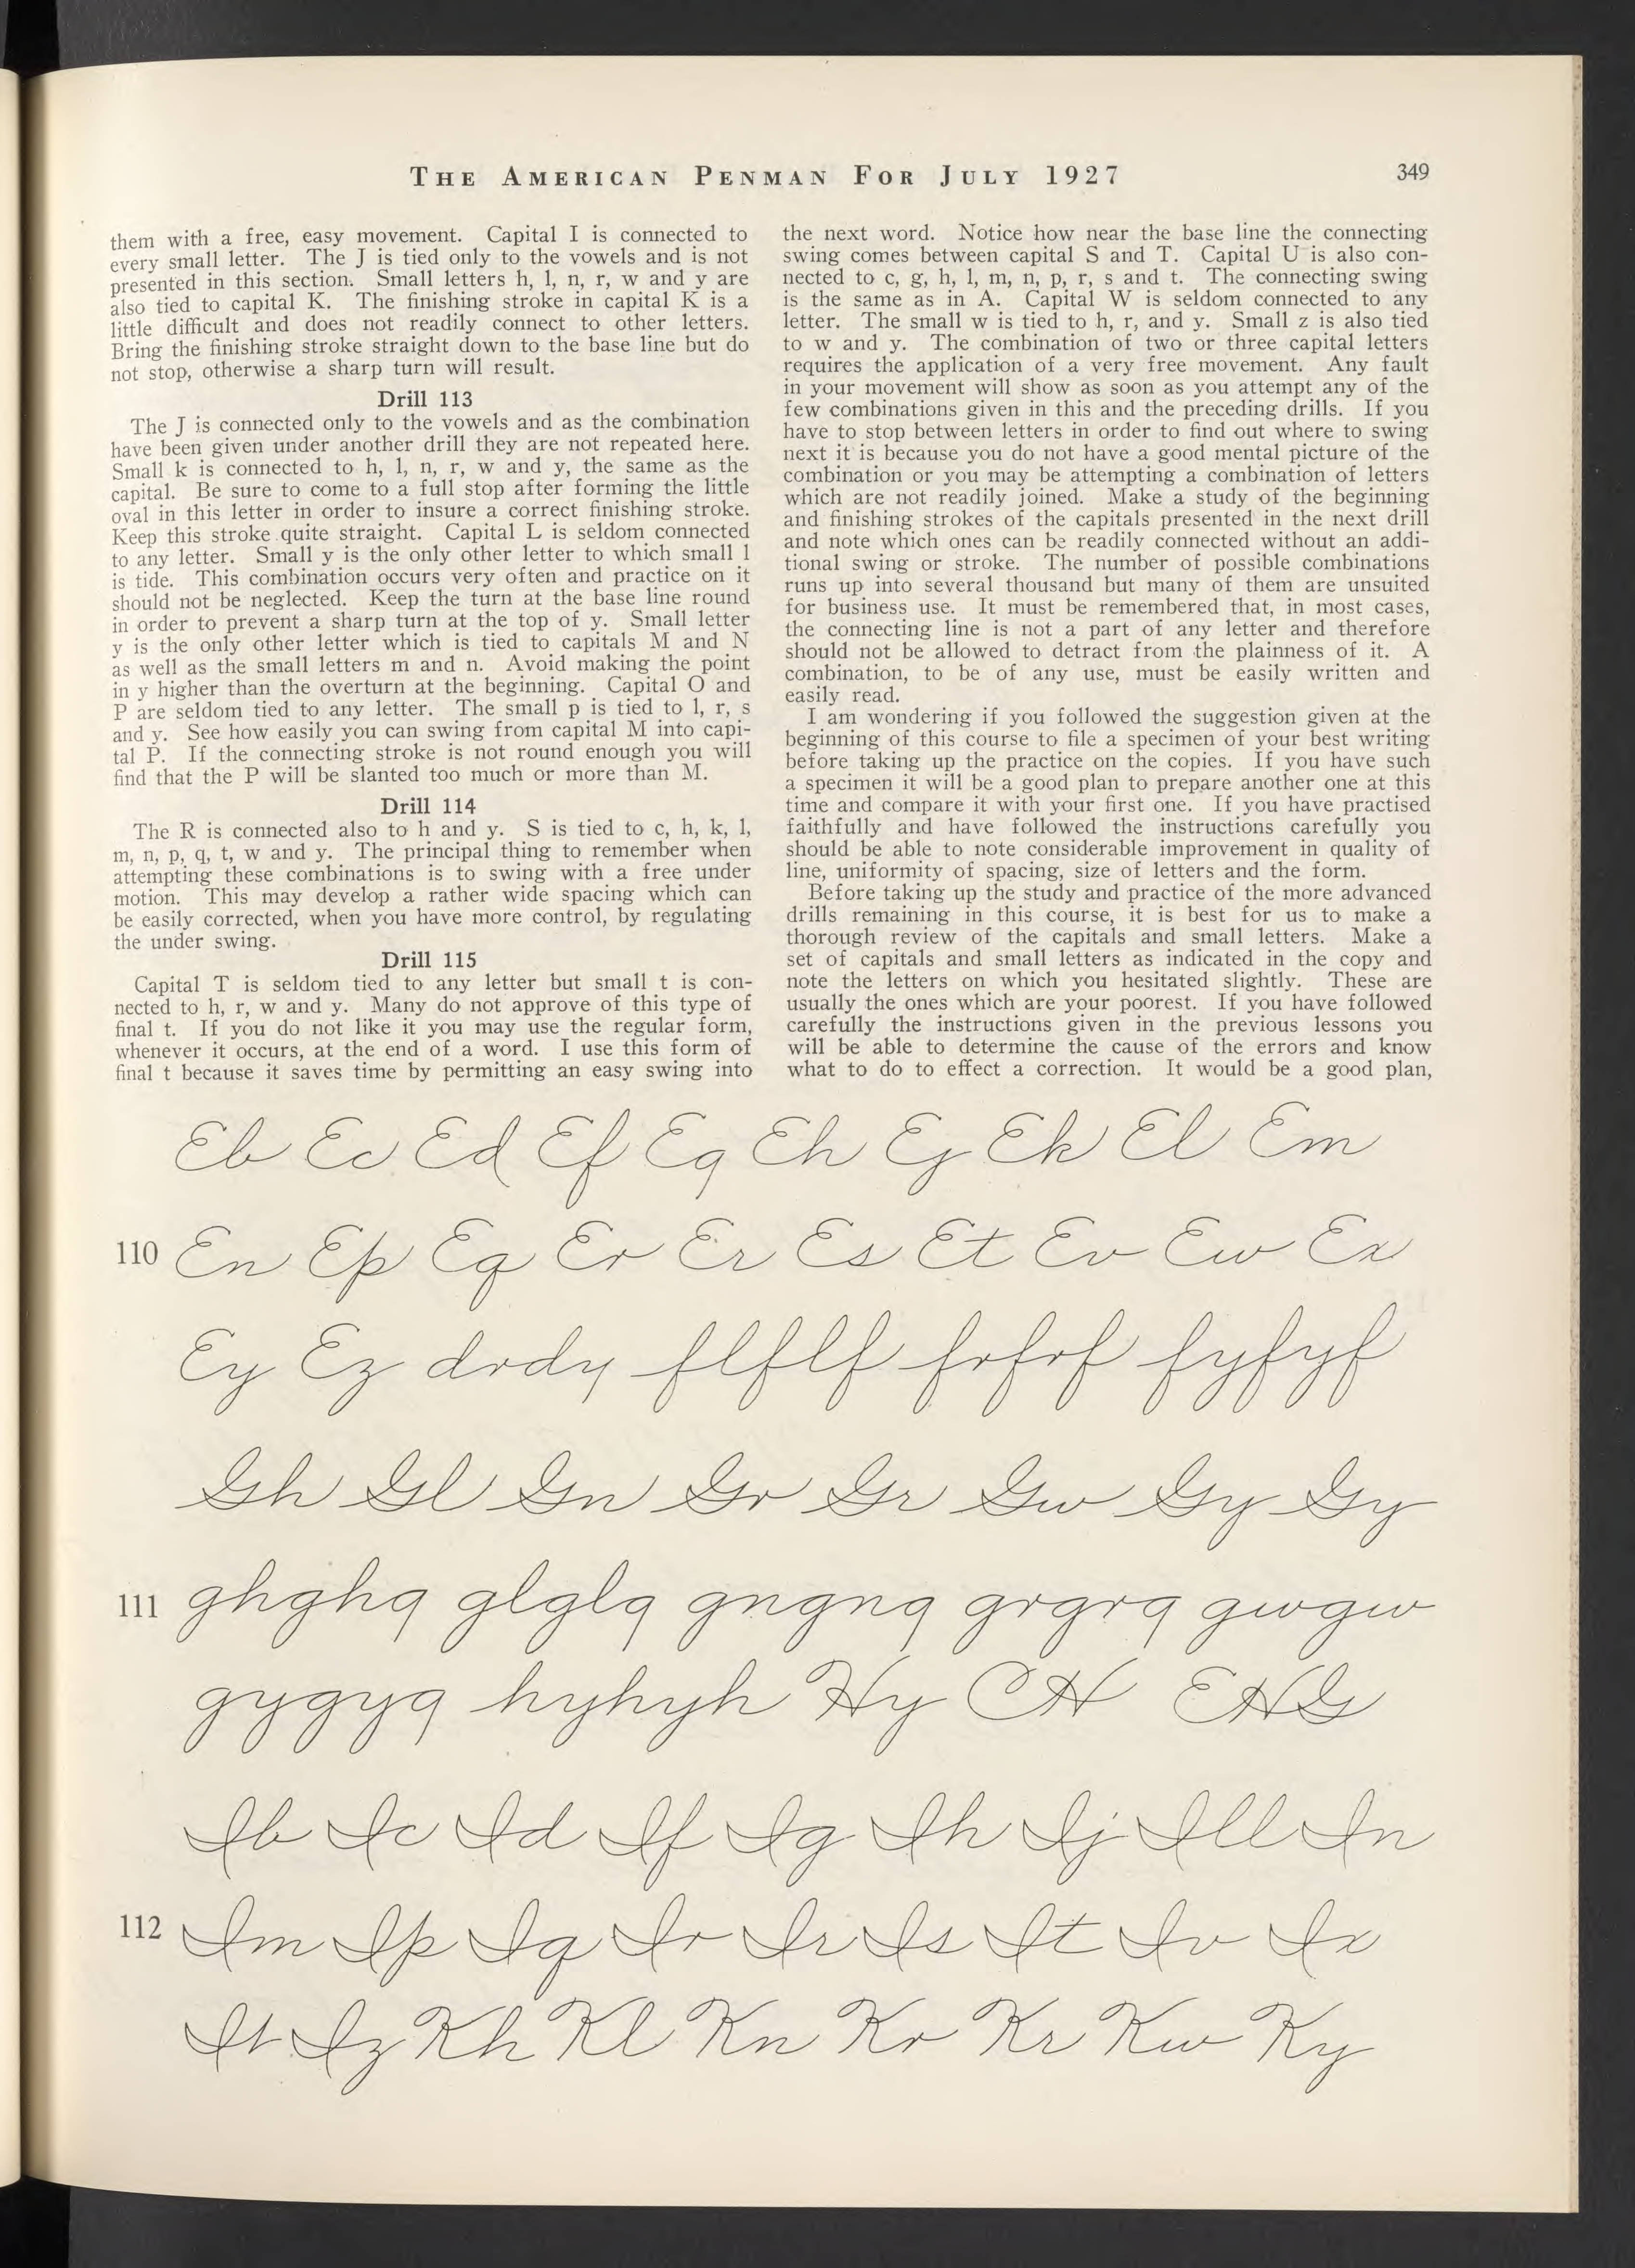 THE AMERICAN PENMAN FOR JULY 1927
349
them with a free, easy movement. Capital I is connected to
every small letter. The J is tied only to the vowels and is not
presented in this section. Small letters h, l, n, r, w and y are
also tied to capital K. The finishing stroke in capital K is a
little difficult and does not readily connect to other letters.
Bring the finishing stroke straight down to the base line but do
not stop, otherwise a sharp turn will result.
Drill 113
The J is connected only to the vowels and as the combination
have been given under another drill they are not repeated here.
Small k is connected to h, l, n, r, w and y, the same as the
capital. Be sure to come to a full stop after forming the little
oval in this letter in order to insure a correct finishing stroke.
Keep this stroke quite straight. Capital L is seldom connected
to any letter. Small y is the only other letter to which small l
is tide. This combination occurs very often and practice on it
should not be neglected. Keep the turn at the base line round
in order to prevent a sharp turn at the top of y. Small letter
y is the only other letter which is tied to capitals M and N
as well as the small letters m and n. Avoid making the point
in y higher than the overturn at the beginning. Capital O and
P are seldom tied to any letter. The small p is tied to l, r, s
and y. See how easily you can swing from capital M into capi-
tal P. If the connecting stroke is not round enough you will
find that the P will be slanted too much or more than M.
Drill 114
The R is connected also to h and y. S is tied to c, h, k, l,
m, n, p, q, t, w and y. The principal thing to remember when
attempting these combinations is to swing with a free under
motion. This may develop a rather wide spacing which can
be easily corrected, when you have more control, by regulating
the under swing.
Drill 115
Capital T is seldom tied to any letter but small t is con-
nected to h, r, w and y. Many do not approve of this type of
final t. If you do not like it you may use the regular form,
whenever it occurs, at the end of a word. I use this form of
final t because it saves time by permitting an easy swing into
the next word. Notice how near the base line the connecting
swing comes between capital S and T. Capital U is also con-
nected to c, g, h, l, m, n, p, r, s and t. The connecting swing
is the same as in A. Capital W is seldom connected to any
letter. The small w is tied to h, r, and y. Small z is also tied
to w and y. The combination of two or three capital letters
requires the application of a very free movement. Any fault
in your movement will show as soon as you attempt any of the
few combinations given in this and the preceding drills. If you
have to stop between letters in order to find out where to swing
next it is because you do not have a good mental picture of the
combination or you may be attempting a combination of letters
which are not readily joined. Make a study of the beginning
and finishing strokes of the capitals presented in the next drill
and note which ones can be readily connected without an addi-
tional swing or stroke. The number of possible combinations
runs up into several thousand but many of them are unsuited
for business use. It must be remembered that, in most cases,
the connecting line is not a part of any letter and therefore
should not be allowed to detract from the plainness of it. A
combination, to be of any use, must be easily written and
easily read.
I am wondering if you followed the suggestion given at the
beginning of this course to file a specimen of your best writing
before taking up the practice on the copies. If you have such
a specimen it will be a good plan to prepare another one at this
time and compare it with your first one. If you have practised
faithfully and have followed the instructions carefully you
should be able to note considerable improvement in quality of
line, uniformity of spacing, size of letters and the form.
Before taking up the study and practice of the more advanced
drills remaining in this course, it is best for us to make a
thorough review of the capitals and small letters. Make a
set of capitals and small letters as indicated in the copy and
note the letters on which you hesitated slightly. These are
usually the ones which are your poorest. If you have followed
carefully the instructions given in the previous lessons you
will be able to determine the cause of the errors and know
what to do to effect a correction. It would be a good plan,
Eb Ec Ed Ef Eg Eh Ej Ek El Em
110 En Ep Eq Er Er Es Et Ev Ew Ex
Ey Ez drdy flflf frfrf fyfyf
Gh Gl Gn Gr Gr Gw Gy Gy
111 ghghg glglg gngng grgrg gwgw
gygyg hyhyh Hy CH ENG
Ib Ic Id If Ig Ih Ij Ill In
112 Im Ip Iq Ir Ir Is It Iv Ix
It Iz Kh Kl Kn Kr Kr Kw Ky